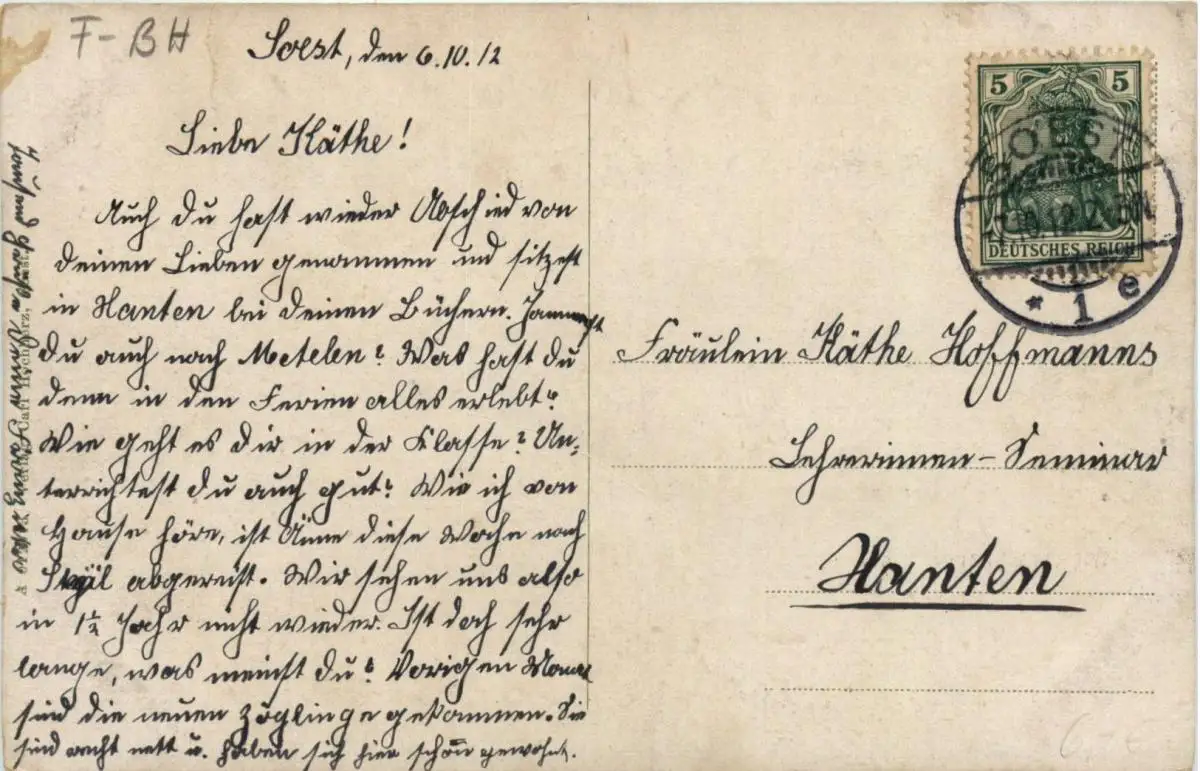 F-BH
Soest, den 6.10.12
Liebe Käthe!
Auch du hast wieder Abschied von
deinen Lieben genommen und sitzest
in Xanten bei deinen Büchern. Kommst
du auch nach Metelen? Was hast du
denn in den Ferien alles erlebt?
Wie geht es dir in der Klasse? Un-
terrichtest du auch gut? Wie ich von
Hause höre, ist Änne diese Woche nach
abgereist. Wir sehen uns also
in 1½ Jahr nicht wieder. Ist doch sehr
lange, was meinst du? Vorigen Monat
sind die neuen Zöglinge gekommen. Sie
sind recht nett u. haben sich hier schön gewohnt.
5 5
DEUTSCHES REICH
SOEST
7.10.12.2
* 1 e
Fräulein Käthe Hoffmanns
Lehrerinnen-Seminar
Xanten